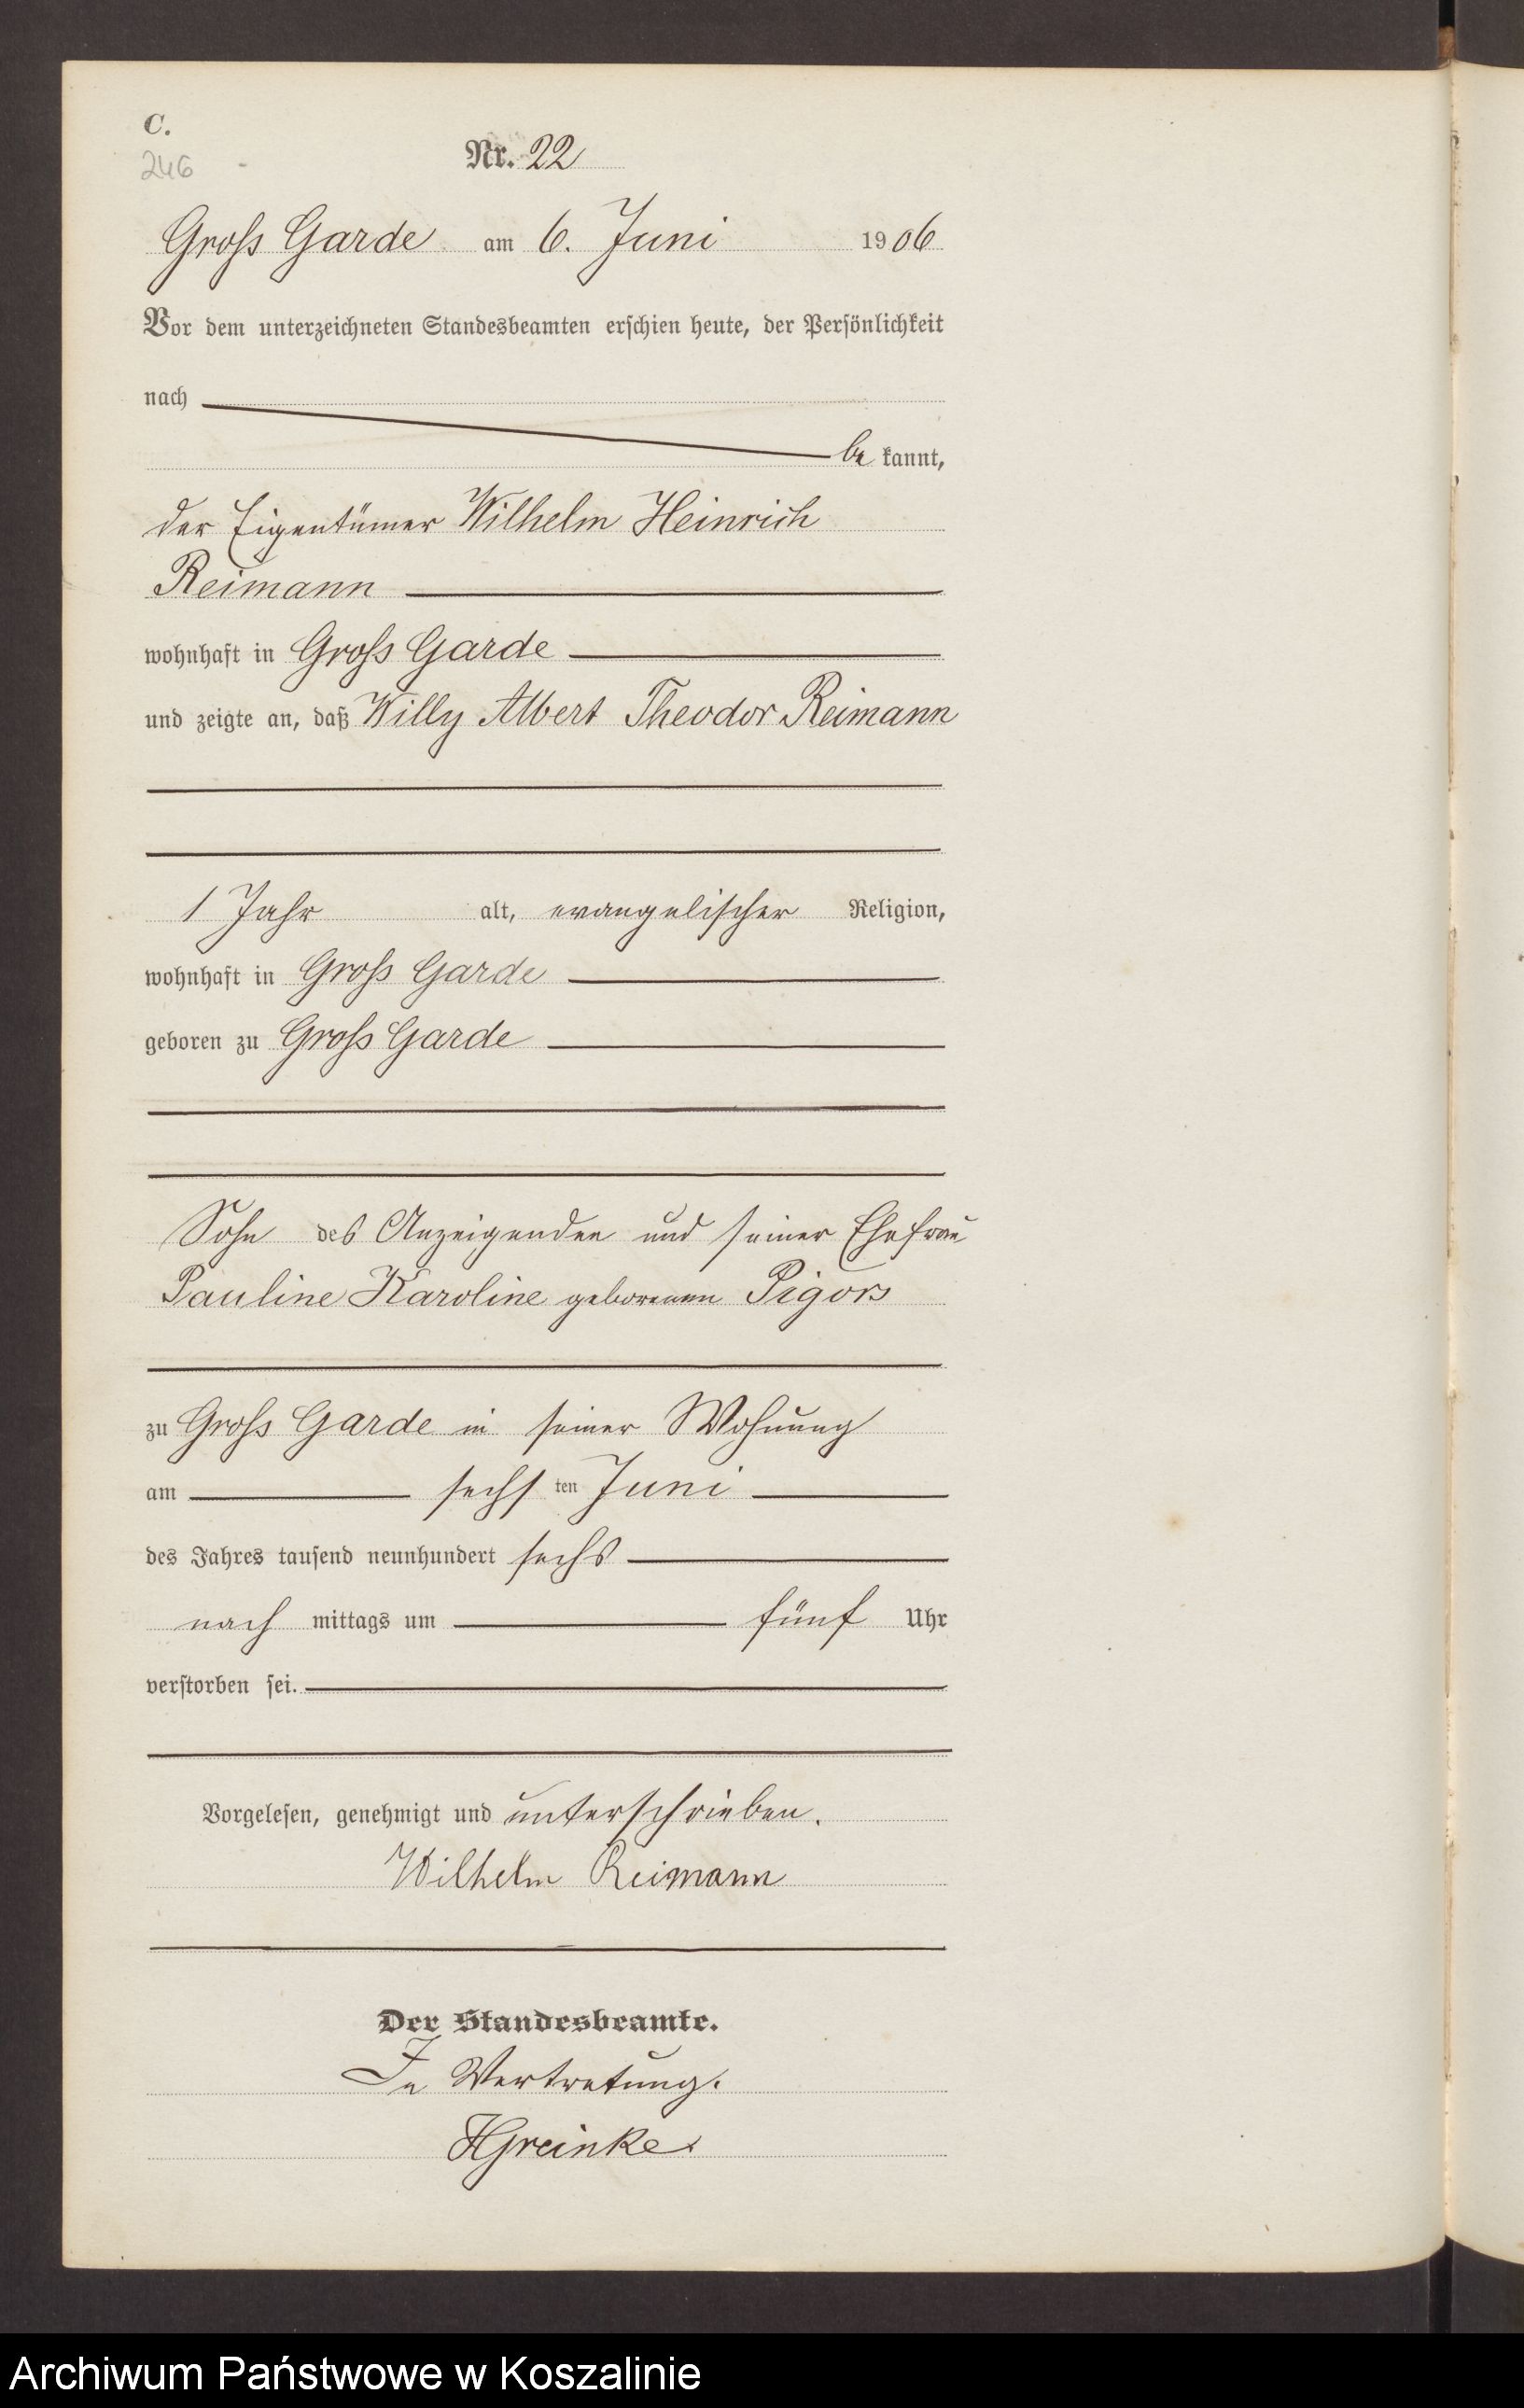 C.
246 -
Nr. 22
Gross Garde am 6. Juni 1906
Vor dem unterzeichneten Standesbeamten erschien heute, der Persönlichkeit
nach
be kannt,
der Eigentümer Wilhelm Heinrich
Reimann
wohnhaft in Gross Garde
und zeigte an, daß Willy Albert Theodor Reimann
1 Jahr alt, evangelischer Religion,
wohnhaft in Gross Garde
geboren zu Gross Garde
Sohn des Anzeigenden und seiner Ehefrau
Pauline Karoline geborenen Pigors
zu Gross Garde in seiner Wohnung
am sechs ten Juni
des Jahres tausend neunhundert sechs
nach mittags um fünf Uhr
verstorben sei.
Vorgelesen, genehmigt und unterschrieben.
Wilhelm Reimann
Der Standesbeamte.
In Vertretung.
HGreinke
Archiwum Państwowe w Koszalinie